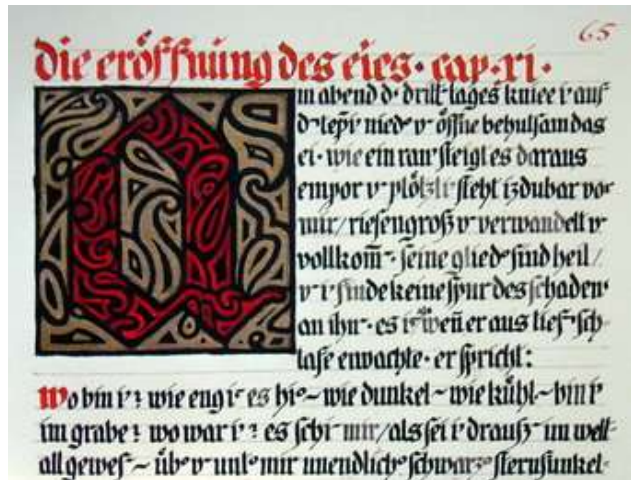 65
die eröffnung des eies · cap · xi ·
Am abend d· dritt· tages kniee i' auf
d· tepi' nied· v· öffne behutsam das
ei · wie ein rau' steigt es daraus
empor v· plötzli' steht izdubar vor
mir / riesengroß v· verwandelt v·
vollkom̄· seine glied· sind heil /
v· i' finde keine spur des schaden·
an ihn· es i' weñ er aus tief· sch-
lafe erwachte · er spricht :
Wo bin i' ? wie eng i' es hi· ~ wie dunkel ~ wie kühl ~ bin i'
im grabe ? wo war i' ? es schi· mir / als sei i' drauß· im welt-
all gewes· ~ üb· v· unt· mir unendlich· schwarz· sternfunkel-